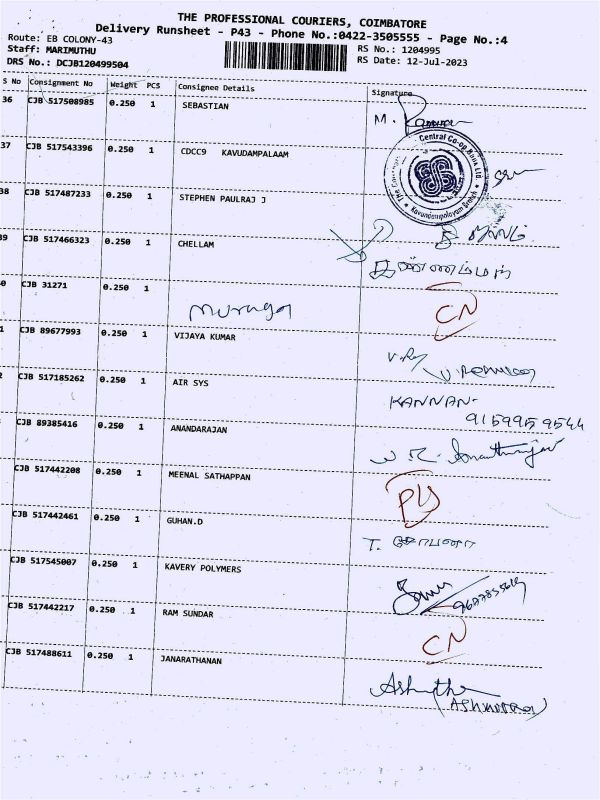 THE PROFESSIONAL COURIERS, COIMBATORE
Delivery Runsheet - P43 - Phone No.:0422-3505555 - Page No.:4
Route: EB COLONY-43
Staff: MARIMUTHU
DRS No.: DCJB120499504
RS No.: 1204995
RS Date: 12-Jul-2023
S No Consignment No Weight PCS Consignee Details Signature
36 CJB 517508985 0.250 1 SEBASTIAN M.
37 CJB 517543396 0.250 1 CDCC9 KAVUDAMPALAAM
Central Co-op Bank Ltd.
Kavundampalayam Branch
38 CJB 517487233 0.250 1 STEPHEN PAULRAJ J
39 CJB 517466323 0.250 1 CHELLAM
0 CJB 31271 0.250 1 Murugan CN
1 CJB 89677993 0.250 1 VIJAYA KUMAR
2 CJB 517185262 0.250 1 AIR SYS KANNAN-
9159959544
CJB 89385416 0.250 1 ANANDARAJAN
CJB 517442208 0.250 1 MEENAL SATHAPPAN
CJB 517442461 0.250 1 GUHAN.D T.
CJB 517545007 0.250 1 KAVERY POLYMERS
CJB 517442217 0.250 1 RAM SUNDAR CN
CJB 517488611 0.250 1 JANARATHANAN